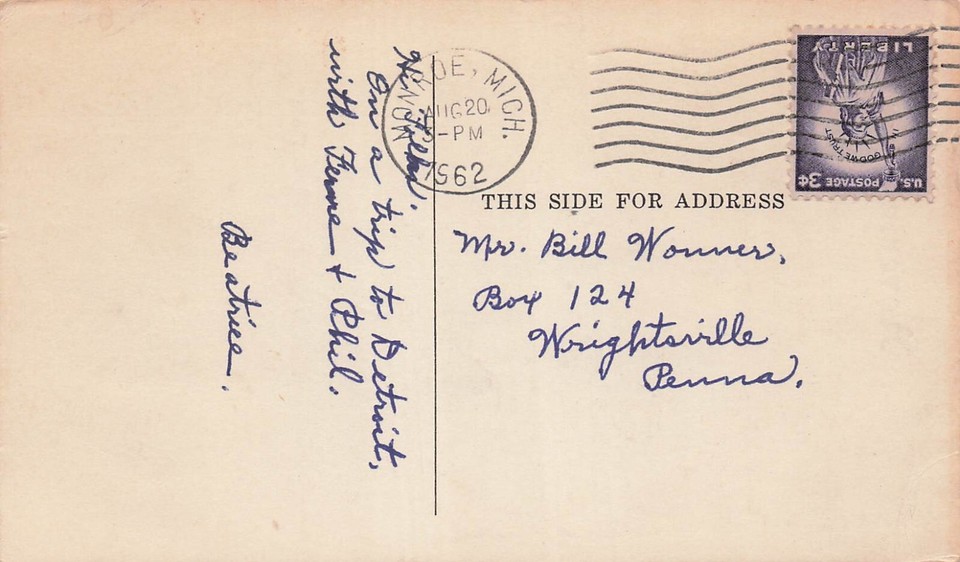 Hi Folks.
On a trip to Detroit,
with Ferne + Phil.
Beatrice.
MONROE, MICH.
AUG 20
-PM
1962
LIBERTY
IN GOD WE TRUST
U.S. POSTAGE 3¢
THIS SIDE FOR ADDRESS
Mr. Bill Wonner,
Box 124
Wrightsville
Penna.